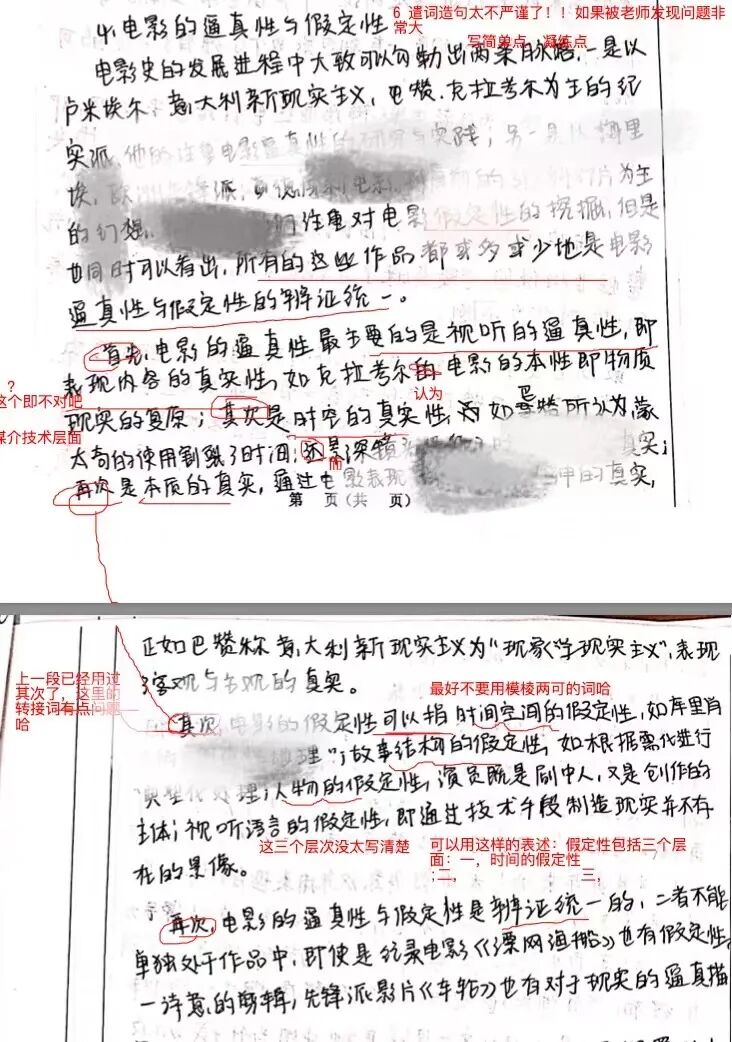 4. 电影的逼真性与假定性
6 遣词造句太不严谨了！！如果被老师发现问题非
常大
写简单点 凝练点
电影史的发展进程中大致可以勾勒出两条脉络，一是以
卢米埃尔、意大利新现实主义，巴赞、克拉考尔为主的纪
实派，他们注重电影逼真性的研究与实践；另一是以梅里
埃，欧洲先锋派，为主
的幻想 们注重对电影假定性的挖掘，但是
也同时可以看出，所有的这些作品都或多或少地是电影
逼真性与假定性的辨证统一。
首先，电影的逼真性最主要的是视听的逼真性，即
表现内容的真实性，如克拉考尔的电影的本性即物质
？
这个即不对吧
认为
现实的复原；其次是时空的真实性，如巴赞所认为，蒙
媒介技术层面
太奇的使用割裂了时间，还是深镜 真实；
再次是本质的真实，通过电影表现 的真实，
第 页（共 页）
正如巴赞称意大利新现实主义为“现象学现实主义”，表现
客观与主观的真实。
上一段已经用过
其次了，这里的
转接词有点问题
哈
最好不要用模棱两可的词哈
其次，电影的假定性可以指时间空间的假定性，如库里肖
地理”；故事结构的假定性，如根据需化进行
典型化处理；人物的假定性，演员既是剧中人，又是创作的
主体；视听语言的假定性，即通过技术手段制造现实并不存
在的景像。
这三个层次没太写清楚
可以用这样的表述：假定性包括三个层
面：一，时间的假定性
；二， 三，
再次，电影的逼真性与假定性是辨证统一的，二者不能
单独处于作品中，即使是纪录电影《漂网渔船》也有假定性
一诗意的剪辑，先锋派影片《车轮》也有对于现实的逼真描